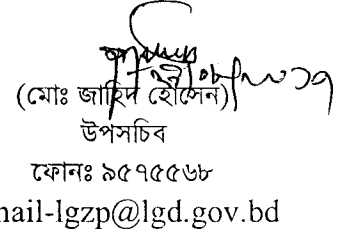 (মোঃ জাহিদ হোসেন)
উপসচিব
ফোনঃ ৯৫৭৫৫৬৮
nail-lgzp@lgd.gov.bd